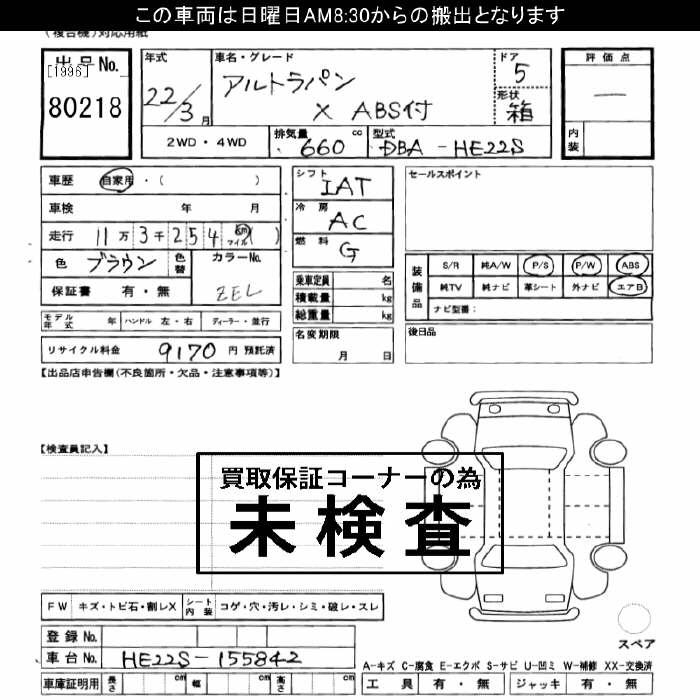 この車両は日曜日AM8:30からの搬出となります
(複合機)対応用紙
出品No.
[1996]
80218
年式
22/3月
車名・グレード
アルトラパン
X ABS付
ドア
5
形状
箱
評価点
―
内装
2WD・4WD
排気量 660 cc
型式 DBA-HE22S
車歴 自家用・( )
車検 年 月
走行 11万3千254 km マイル ( )
色 ブラウン 色替
カラーNo.
ZEL
保証書 有・無
モデル年式 年 ハンドル 左・右 ディーラー・並行
リサイクル料金 9170 円 預託済
シフト IAT
冷房 AC
燃料 G
乗車定員 名
積載量 kg
総重量 kg
名変期限
月 日
セールスポイント
装備品
S/R 純A/W P/S P/W ABS
純TV 純ナビ 革シート 外ナビ エアB
ナビ型番:
後日品
【出品店申告欄(不良箇所・欠品・注意事項等)】
【検査員記入】
買取保証コーナーの為
未検査
FW キズ・トビ石・割レX シート内装 コゲ・穴・汚レ・シミ・破レ・スレ
登録No.
車台No. HE22S-155842
車庫証明用 長さ cm 幅 cm 高さ cm
スペア
A-キズ C-腐食 E-エクボ S-サビ U-凹ミ W-補修 XX-交換済
工具 有・無 ジャッキ 有・無